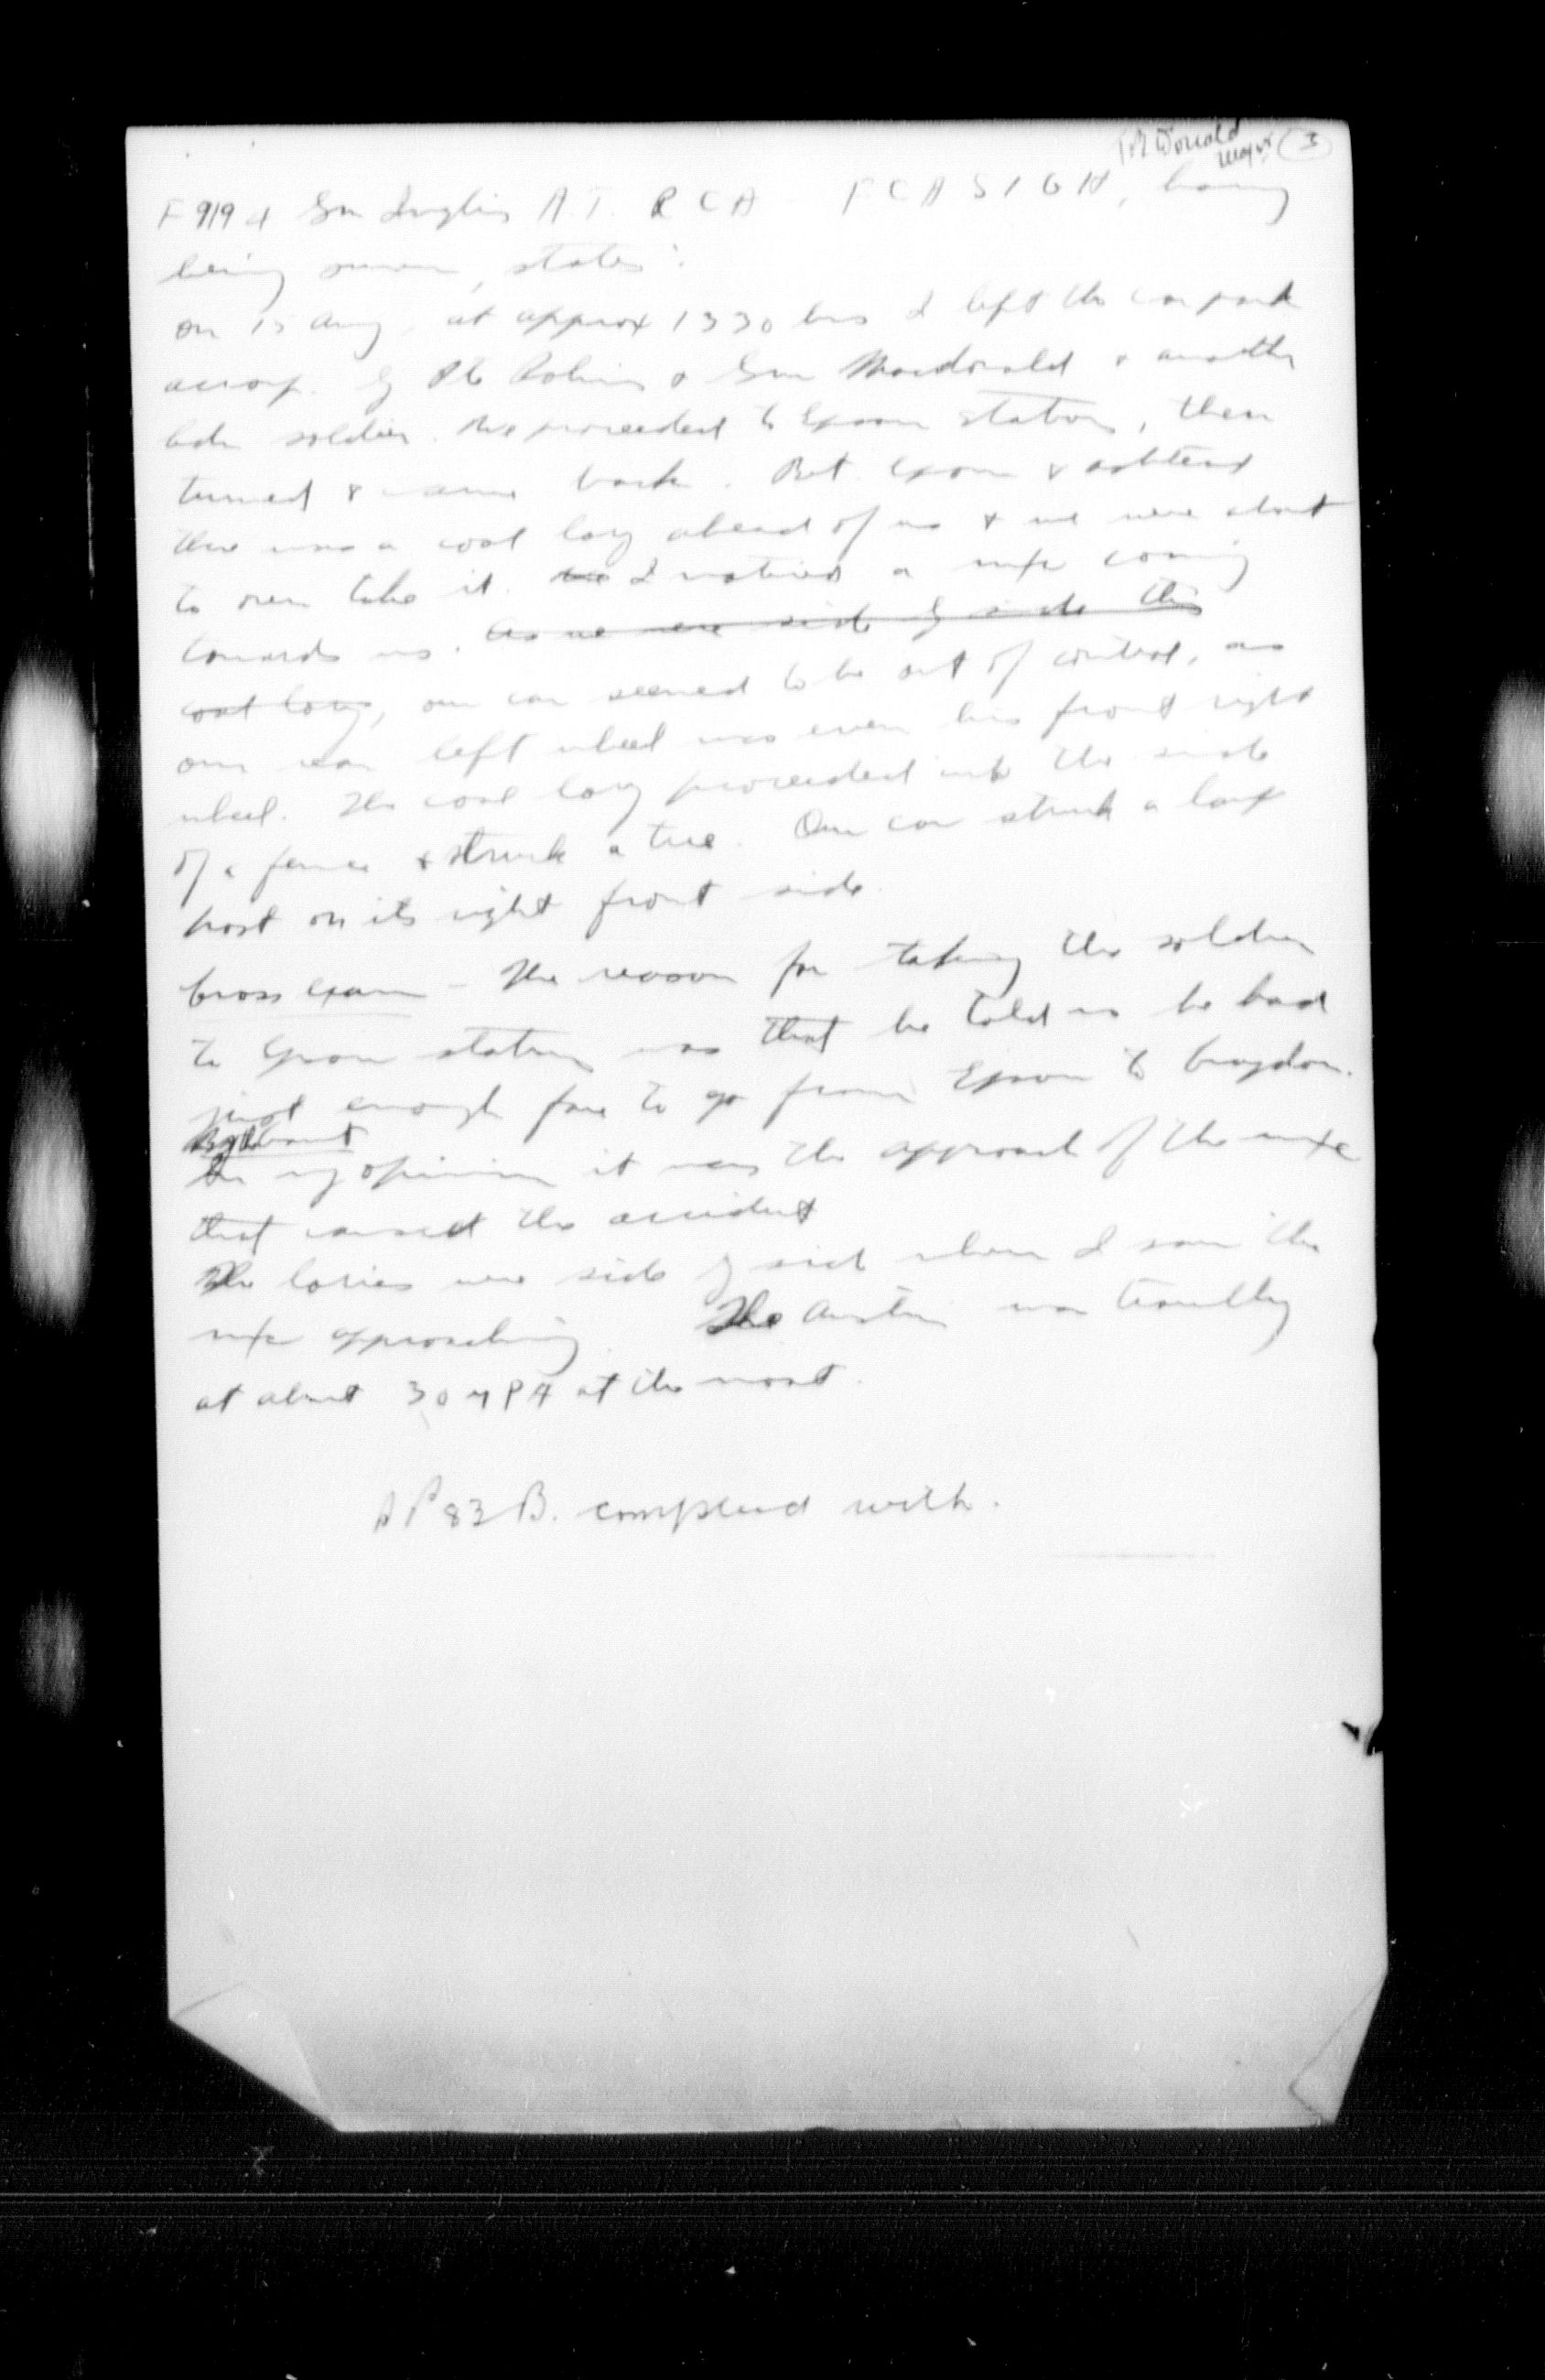 McDonald
Major (3)
F 9194 Gnr Inglis A.T. RCA - 1 C A S I G H, having
being sworn, states:
on 15 Aug, at approx 1330 hrs I left the car park
accomp. by Pte Robins & Gnr Macdonald & another
Cdn soldier. We proceeded to Epsom Station, then
turned & came back. Bet. Epsom & Ashtead
there was a coal lory ahead of us & we were about
to over take it. I noticed a m/c coming
towards us. As we were side by side this
coal lory, our car seemed to be out of control, as
our rear left wheel was even his front right
wheel. The coal lory proceeded into the side
of a fence & struck a tree. Our car struck a lamp
post on its right front side.
Cross exam - The reason for taking the soldier
to Epsom station was that he told us he had
just enough fare to go from Epsom to Croydon.
By Court
In my opinion it was the approach of the m/c
that caused the accident
The lories were side by side when I saw the
m/c approaching. The Austin was travelling
at about 30 MPH at the most.
RP 83 B. complied with.